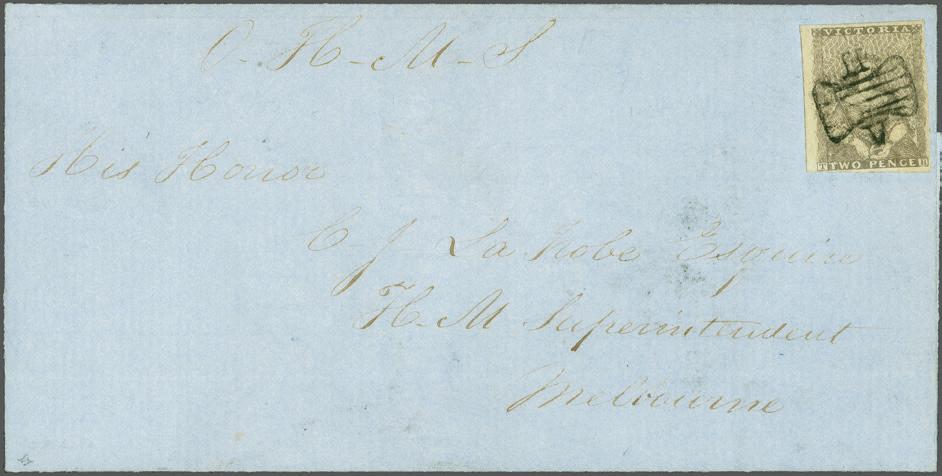 O-H-M-S
VICTORIA
TWO PENCE
His Honor
C J La Trobe Esquire
H-M Superintendent
Melbourne